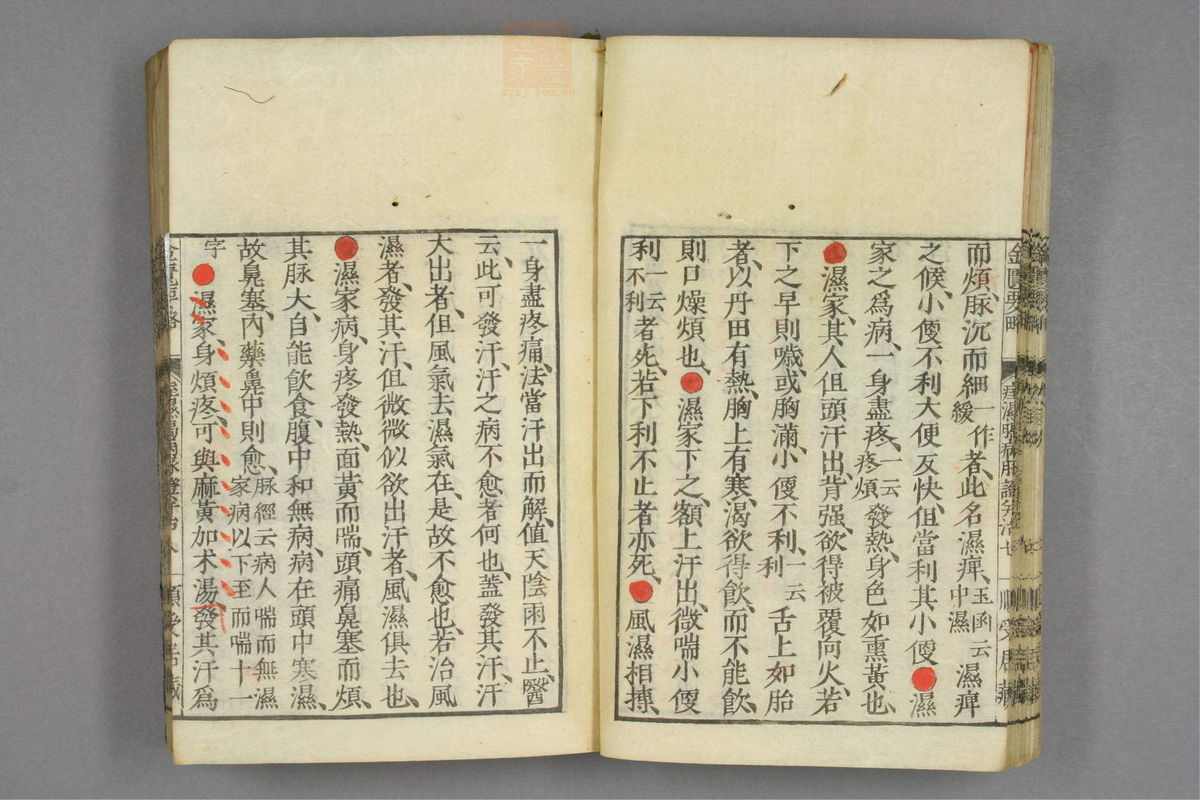 而煩、脉沉而細一作緩者、此名濕痺、玉函云中濕濕痺
之候、小便不利大便反快、但當利其小便●濕
家之爲病、一身盡疼、一云疼煩發熱、身色如熏黃也、
●濕家、其人但頭汗出、背强、欲得被覆向火、若
下之早則噦、或胸滿、小便不利、一云利舌上如胎
者、以丹田有熱、胸上有寒、渴欲得飲、而不能飲、
則口燥煩也、●濕家下之、額上汗出、微喘小便
利一云不利者死、若下利不止者亦死、●風濕相摶、
一身盡疼痛、法當汗出而解、值天陰雨不止、醫
云、此可發汗、汗之病不愈者何也、蓋發其汗、汗
大出者、但風氣去濕氣在、是故不愈也、若治風
濕者、發其汗、但微微似欲出汗者、風濕俱去也、
●濕家病、身疼發熱、面黃而喘、頭痛鼻塞而煩、
其脉大、自能飲食、腹中和無病、病在頭中寒濕、
故鼻塞、內藥鼻中則愈、脉經云病人喘而無濕家病以下至而喘十一
字●濕家、身煩疼、可與麻黃加术湯、發其汗爲